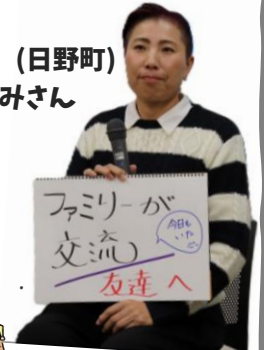 (日野町)
みさん
ファミリーが
交流
今日も
いた
友達へ